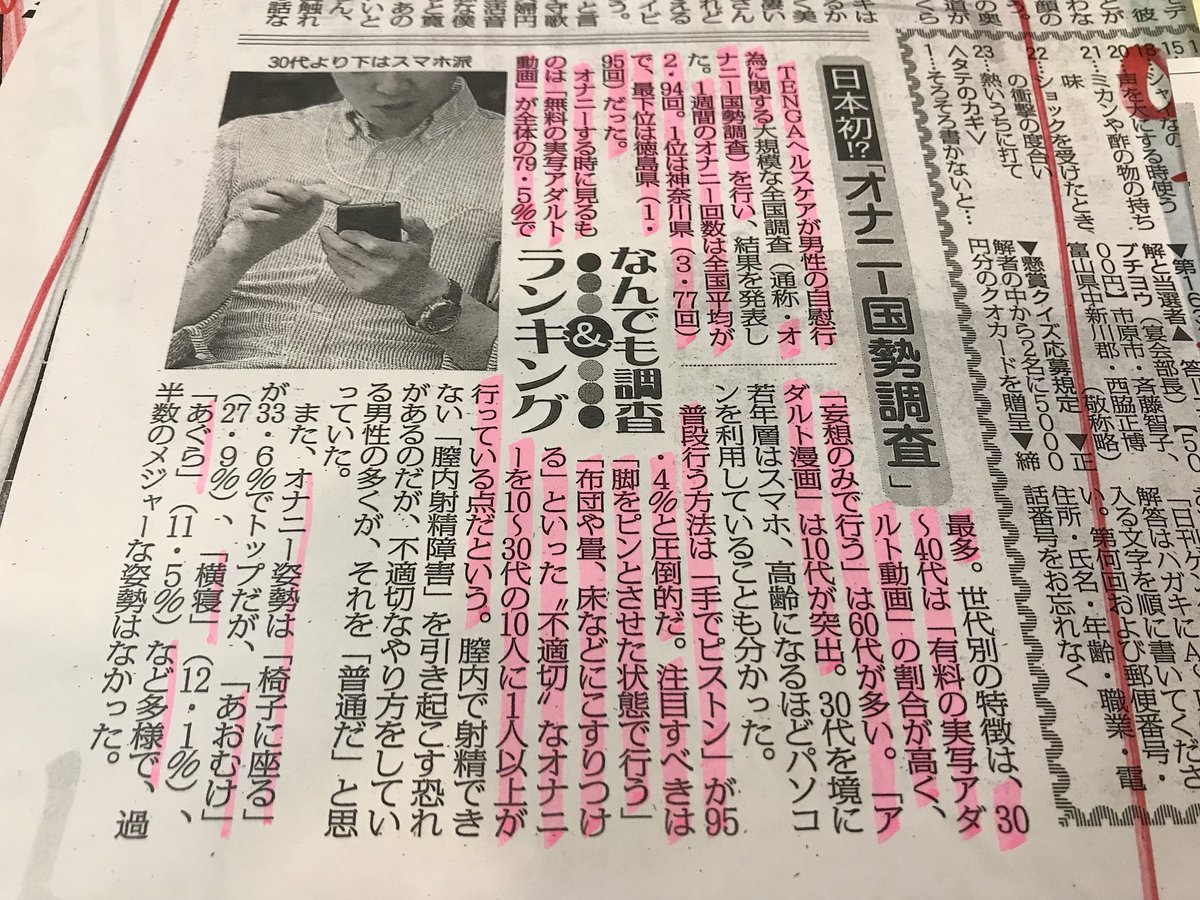 18…
声を大にする時使う
20…ミカンや酢の物の持ち
味
21…ショックを受けたとき
22…
の衝撃の度合い
23…熱いうちに打て
〈タテのカギ〉
1…そろそろ書かないと…
解と当選者▲
プチヨウ(宴会部長)
00円】市原市・斉藤智子、
富山県中新川郡・西脇正博
(敬称略)
▼懸賞クイズ応募規定 ▼正
解者の中から2名に5000
円分のクオカードを贈呈▼締
解答はハガキに
解答を順に書いてくださ
入る文字
い。第何回および郵便番号・
住所・氏名・年齢・職業・電
話番号をお忘れなく
日本初!?「オナニー国勢調査」
TENGAヘルスケアが男性の自慰行
為に関する大規模な全国調査(通称・オ
ナニー国勢調査)を行い、結果を発表し
た。1週間のオナニー回数は全国平均が
2・94回。1位は神奈川県(3・77回)
で、最下位は徳島県(1・
95回)だった。
オナニーする時に見るも
のは「無料の実写アダルト
動画」が全体の79・5%で
最多。世代別の特徴は、30
〜40代は「有料の実写アダ
ルト動画」の割合が高く、
「妄想のみで行う」は60代が多い。「ア
ダルト漫画」は10代が突出。30代を境に
若年層はスマホ、高齢になるほどパソコ
ンを利用していることも分かった。
普段行う方法は「手でピストン」が95
・4%と圧倒的だ。注目すべきは
「脚をピンとさせた状態で行う」
「布団や畳、床などにこすりつけ
る」といった〝不適切〟なオナニ
ーを10〜30代の10人に1人以上が
行っている点だという。膣内で射精でき
ない「膣内射精障害」を引き起こす恐れ
があるのだが、不適切なやり方をしてい
る男性の多くが、それを「普通だ」と思
っていた。
また、オナニー姿勢は「椅子に座る」
が33・6%でトップだが、「あおむけ」
(27・9%)、「横寝」(12・1%)、
「あぐら」(11・5%)など多様で、過
半数のメジャーな姿勢はなかった。
なんでも調査
&
ランキング
30代より下はスマホ派